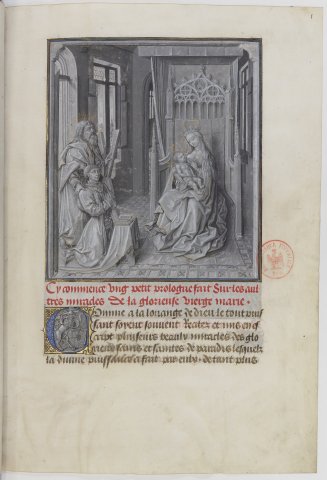 Cy commence ung petit prologue fait sur les aul
tres miracles de la glorieuse vierge marie.
Comme a la loenge de dieu le tout puis
sant soyent souvent recitez et mis en es
cript pluiseurs beaulx miracles des glo
rieux sains et saintes de paradis lesquelz
la divine puissance a fait par eulx. de tant plus